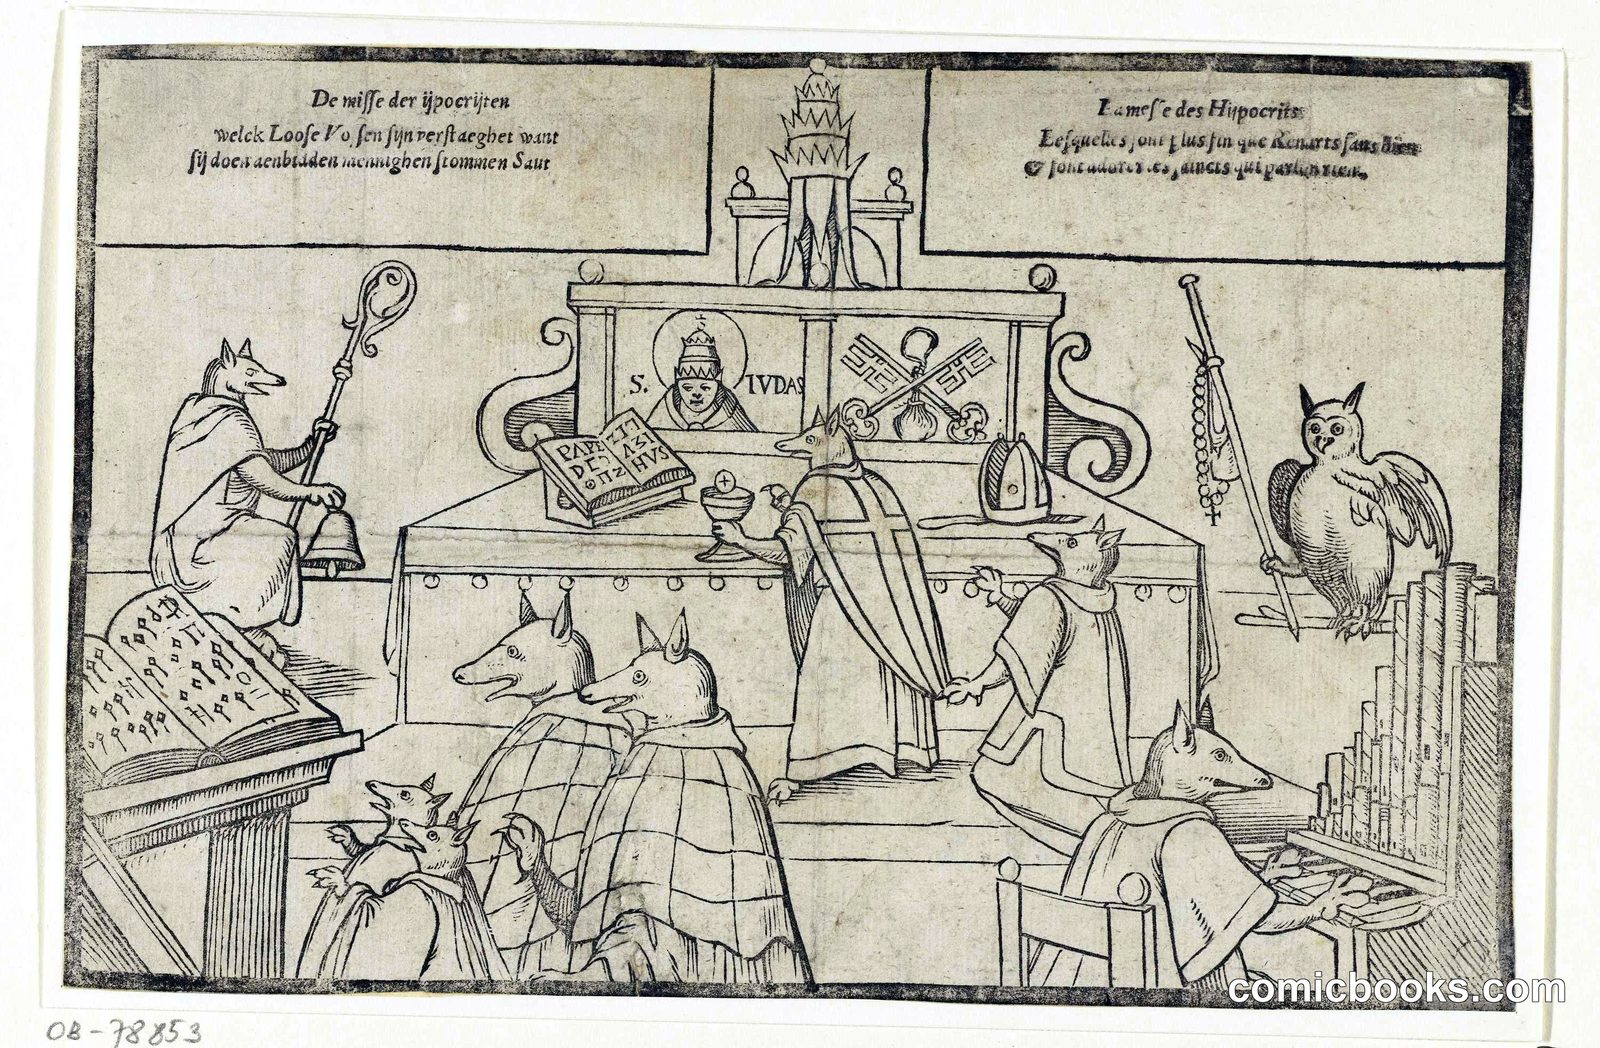 De misse der ijpocrijten
welck Loose Vossen sijn verstaeghet want
sij doen aenbidden mennighen stommen Saut
La messe des Hijpocrits
Lesquelles sont plus fin que Renarts sans
& font adorer les saincts qui parlen rien,
S. IVDAS
comicbooks.com
OB-78853